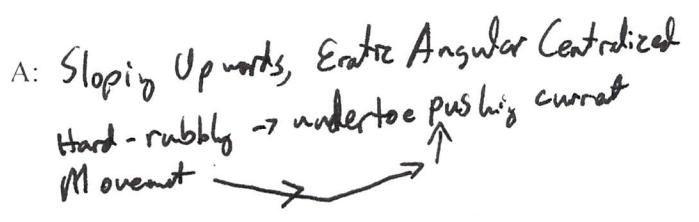 A: Sloping Upwords, Eratic Angular Centralized
Hard-rubbly → undertoe pushing currat
Movemnt